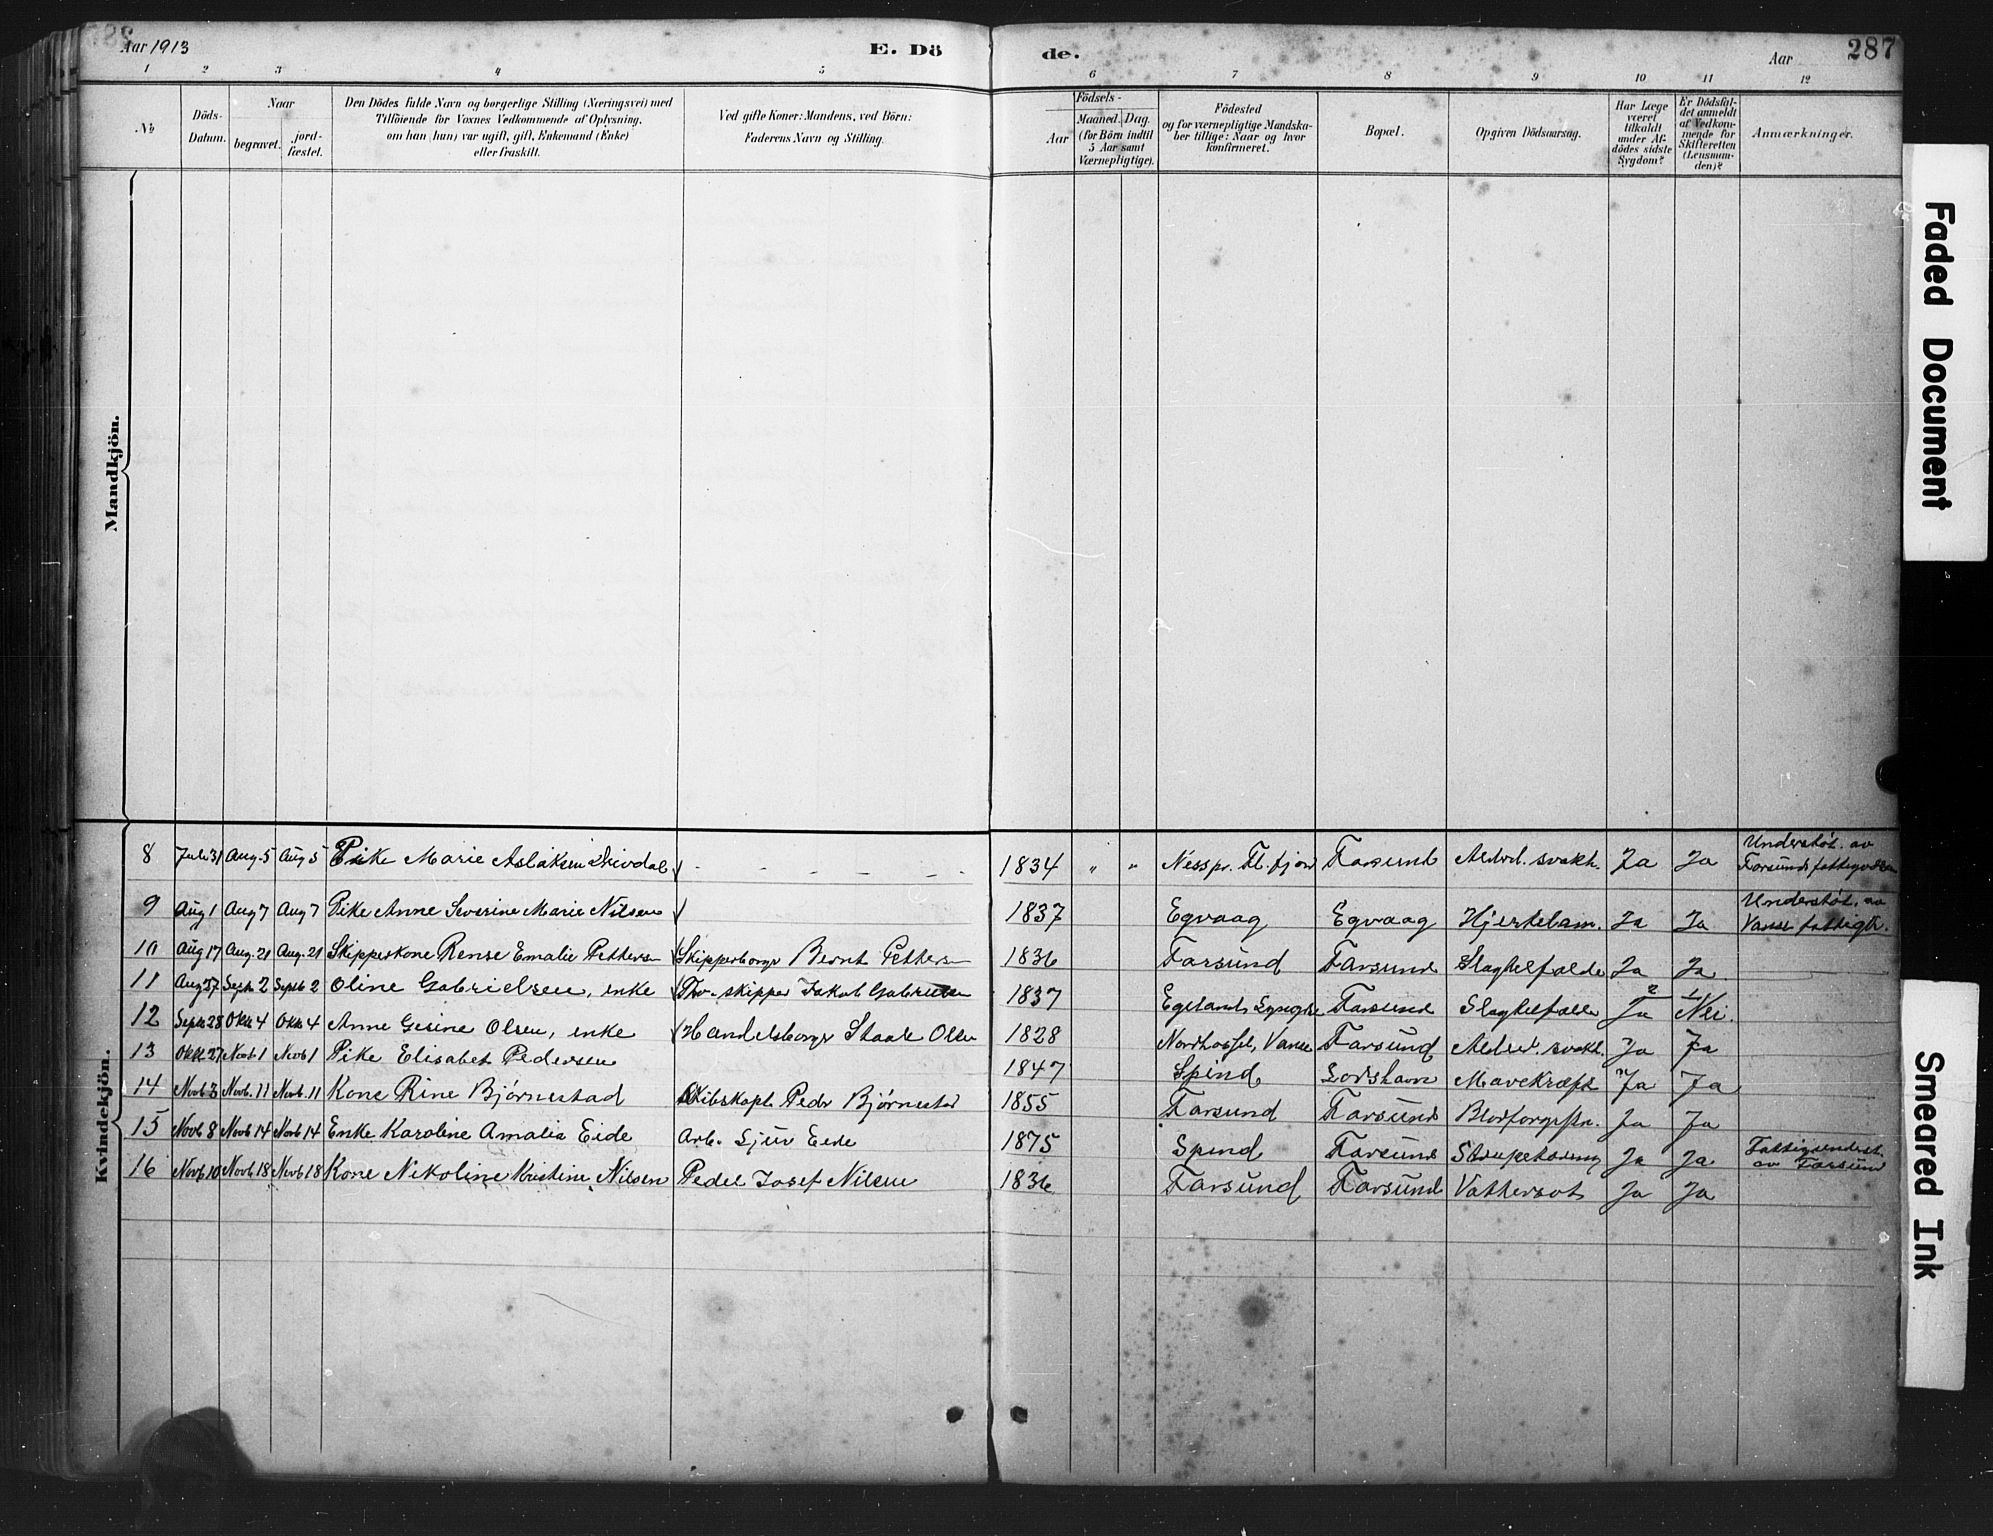 Aar 1913
E. Dö
de.
Aar
287
1 2 3 4 5 6 7 8 9 10 11 12
№
Döds-Datum.
Naar
begravet.
jord-fæstet.
Den Dödes fulde Navn og borgerlige Stilling (Næringsvei) med
Tilföiende for Voxnes Vedkommende af Oplysning,
om han (hun) var ugift, gift, Enkemand (Enke)
eller fraskilt.
Ved gifte Koner: Mandens, ved Börn:
Faderens Navn og Stilling.
Aar
Födsels-
Maaned. Dag.
(for Börn indtil
5 Aar samt
Værnepligtige).
Födested
og for værnepligtige Mandska-
ber tillige: Naar og hvor
konfirmeret.
Bopæl.
Opgiven Dödsaarsag.
Har Læge
været
tilkaldt
under Af-
dödes sidste
Sygdom?
Er Dödsfal-
det anmeldt
af Vedkom-
mende for
Skifteretten
(Lensman-
den)?
Anmærkninger.
Mandkjön.
Kvindekjön.
8 Juli 31 Aug. 5 Aug 5 Pike Marie Aslaksen - - - 1834 " " Nesspr. Fl. fjord Farsund Alderd. svakh. Ja Ja Understøt. av Farsunds
9 Aug 1 Aug 7 Aug 7 Pike Anne Severine Marie Nilsen 1837 Egvaag Egvaag Hjertelam. Ja Ja Understøt. av Vanse fattigk.
10 Aug 17 Aug. 21 Aug. 21 Skipperkone Rense Emalie Pettersen Skipperborger Bernt Pettersen 1836 Farsund Farsund Slagtelfælde Ja Ja
11 Aug 27 Septr 2 Septbr 2 Oline Gabrielsen, enke skipper Jakob Gabrielsen 1837 Egeland, Lyngdal Farsund Slagtelfælde Ja Nei.
12 Septr 28 Oktr 4 Oktr 4 Anne Gesine Olsen, enke Handelsborger Staale Olsen 1828 Nordhassel, Vanse Farsund Alderd. svakh. Ja Ja
13 Oktr 27 Novb 1 Novb 1 Pike Elisabet Pedersen 1847 Spind Loshavn Mavekræft Ja Ja
14 Novb 3 Novb. 11 Novb. 11 Kone Rine Bjørnestad Skibskapt Peder Bjørnestad 1855 Farsund Farsund Blodforgiftn. Ja Ja
15 Novb 8 Novb 14 Novb 14 Enke Karoline Amalia Eide Arb. Sjur Eide 1875 Spind Farsund Ja Ja Fattigunderst. av Farsund
16 Novb 10 Novb 18 Novb 18 Kone Nikoline Kristine Nilsen Pedel Josef Nilsen 1836 Farsund Farsund Vattersot Ja Ja
Faded Document
Smeared Ink